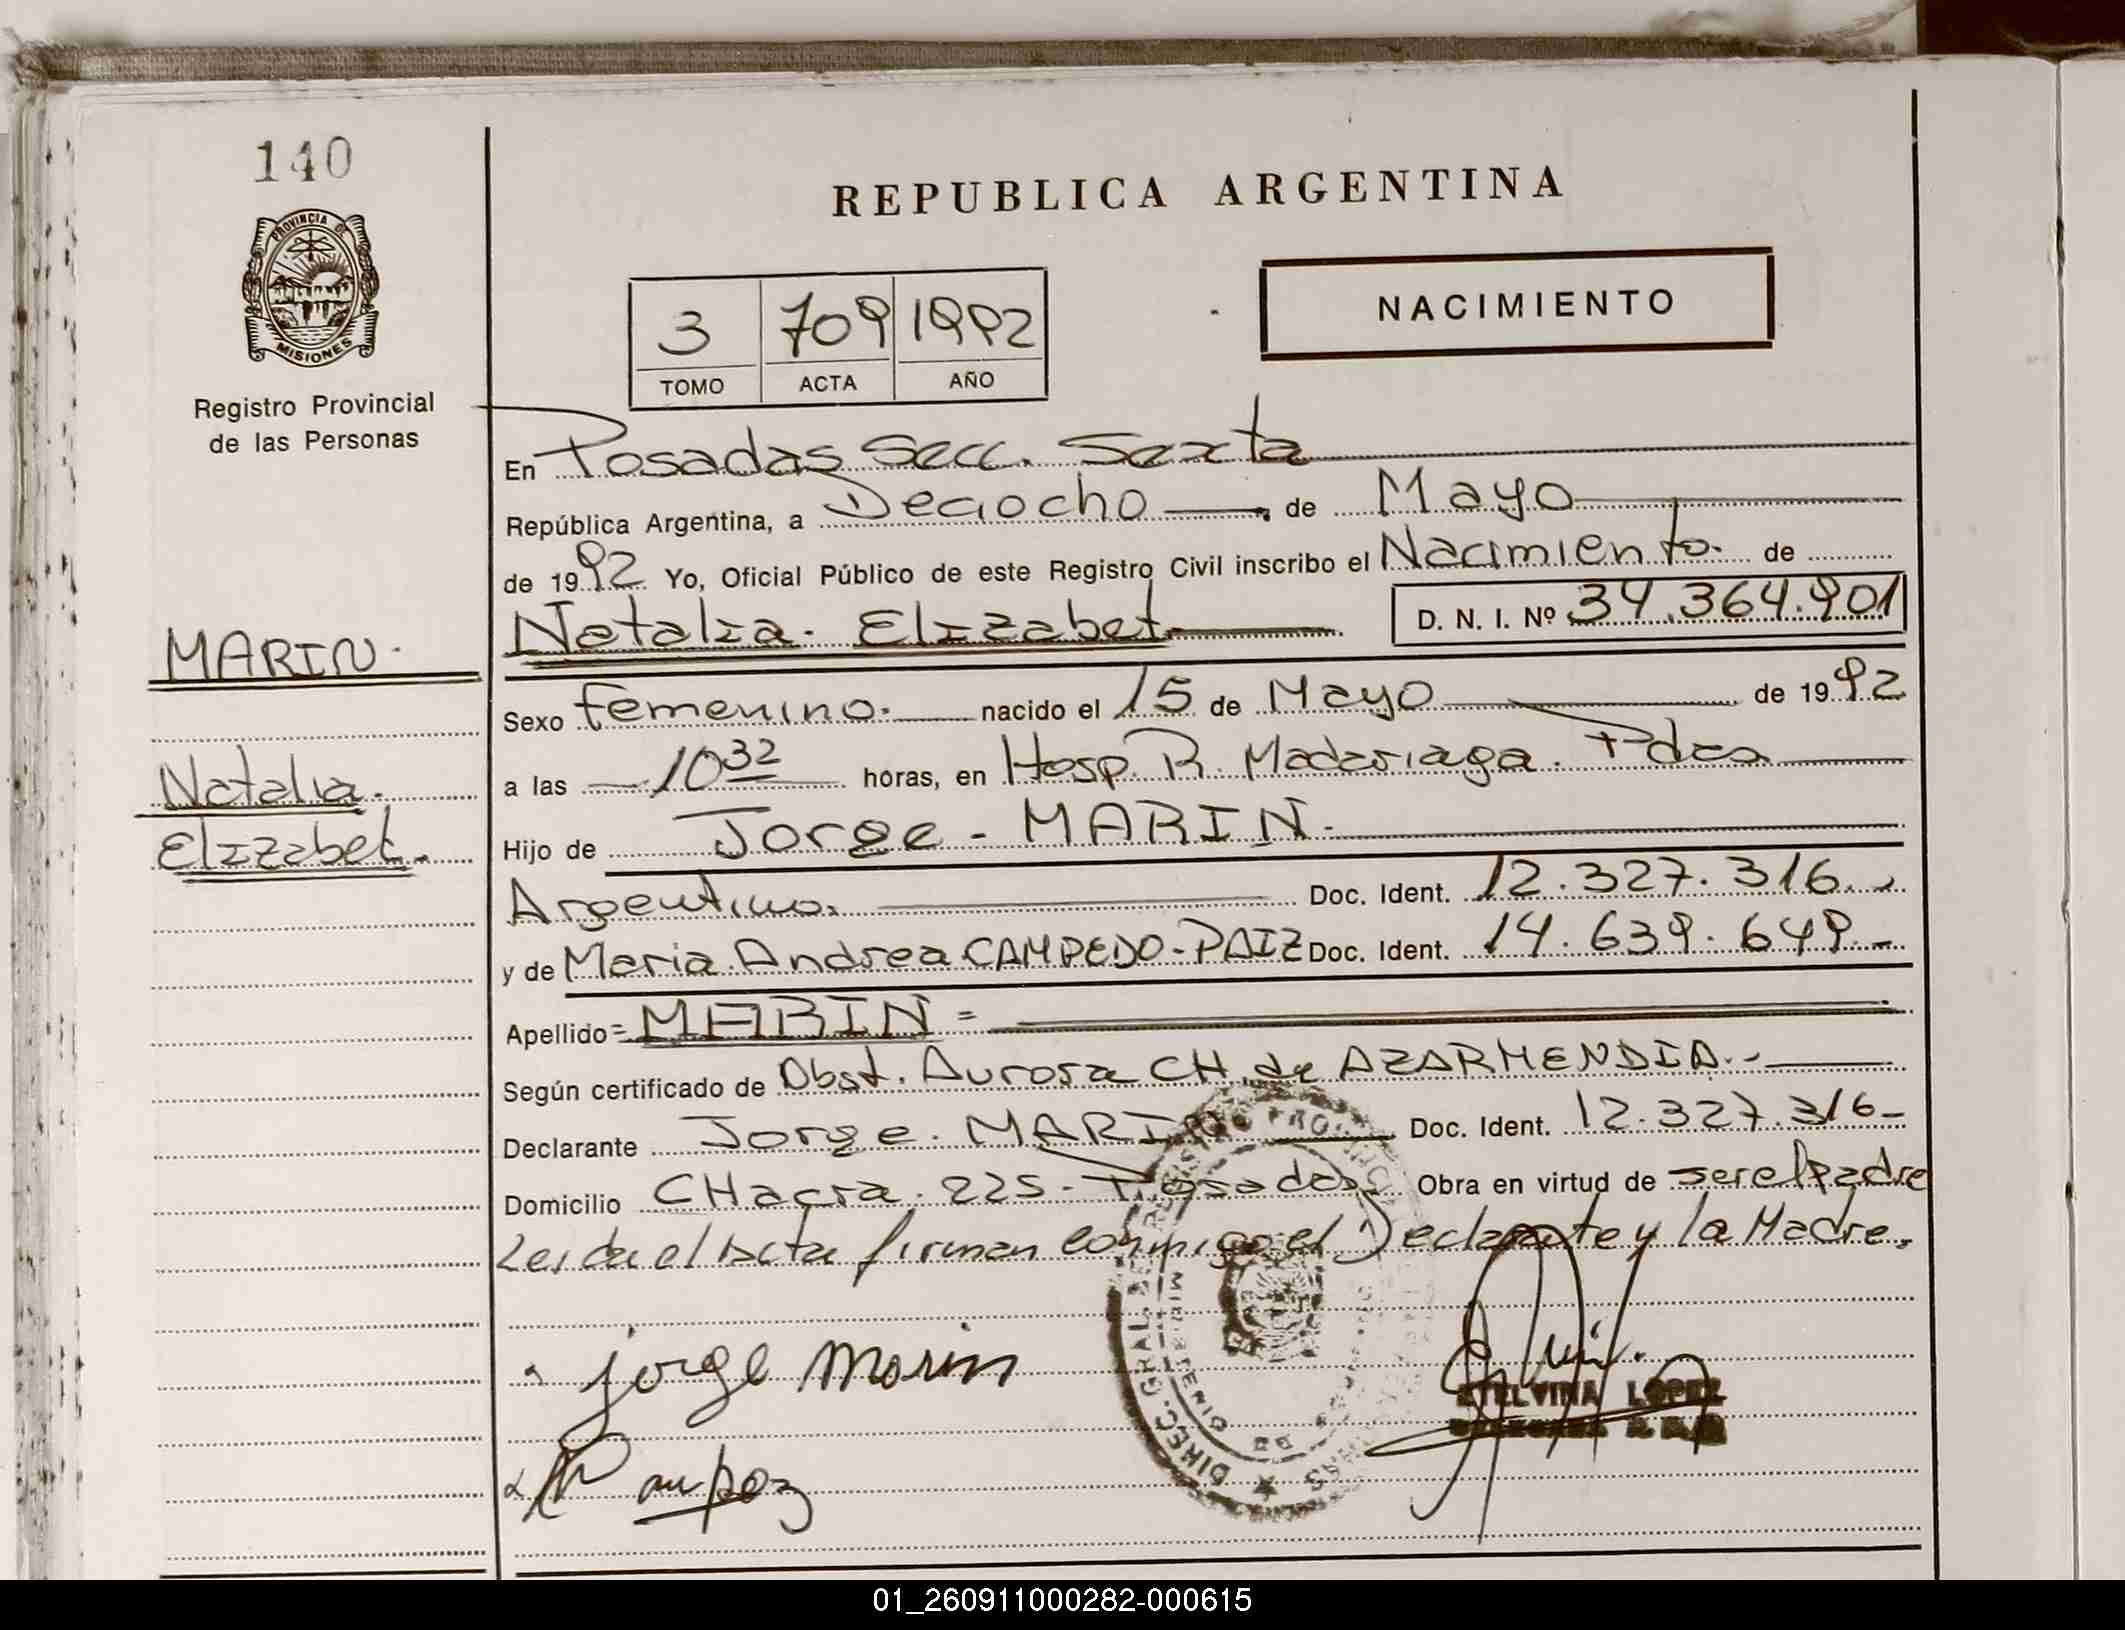 140
PROVINCIA DE
MISIONES
Registro Provincial
de las Personas
REPUBLICA ARGENTINA
NACIMIENTO
3 709 1992
TOMO ACTA AÑO
En Posadas Secc. Sexta
República Argentina, a Deciocho de Mayo
de 1992 Yo, Oficial Público de este Registro Civil inscribo el Nacimiento. de
Natalia. Elizabet D. N. I. Nº 34.364.901
MARIN.
Natalia.
Elizabet.
Sexo femenino. nacido el 15 de Mayo de 1992
a las 10 32 horas, en Hosp. R. Madariaga. Pdas
Hijo de Jorge - MARIN.
Argentino. Doc. Ident. 12.327.316.-
y de Maria. Andrea CAMPEDO-PAIZ Doc. Ident. 14.639.649.-
Apellido = MARIN =
Según certificado de Obst. Aurora CH. de AZARMENDIA.-
Declarante Jorge. MARIN Doc. Ident. 12.327.316-
Domicilio CHacra. 225 - Posadas Obra en virtud de ser el Padre
Leida el Acta firman conmigo el Declarante y la Madre.
jorge Marin
DIREC. GRAL. DE REGISTRO PROVINCIAL
ETELVINA LOPEZ
01_260911000282-000615